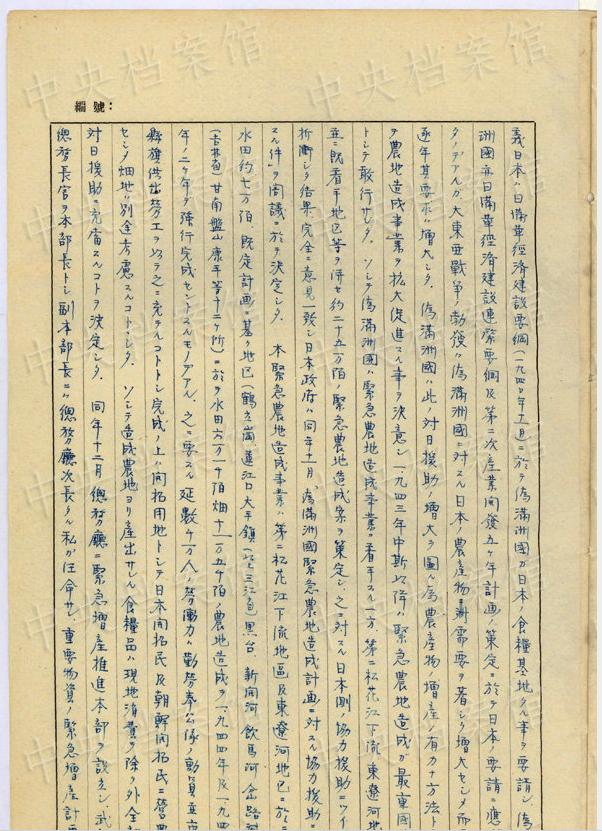 編號:
義日本ハ日満華經済建設要綱(一九四〇年十一月)ニ於テ偽満洲國ガ日本ノ食糧基地タル事ヲ要請シ、偽
洲國亦日満華經済建設連繋要綱及第二次産業開發五ヶ年計画ノ策定ニ於テ日本ノ要請ニ應
タノデアルガ、大東亜戦争ノ勃發ハ偽満洲國ニ対スル日本ノ農産物需要ヲ著シク増大センメ而
逐年其要求ハ増大シタ。偽満洲國ハ此ノ対日援助ノ増大ヲ圖ル為農産物ノ増産ノ有力ナ方法ト
ヲ農地造成事業ヲ拡大促進スル事ヲ決意シ、一九四三年中期以降ハ緊急農地造成ガ最重國
トシテ敢行サレタ。ソシテ偽満洲國ハ緊急農地造成事業ニ着手スル一方、第二松花江下流、東遼河地
並ニ既着手地区等ヲ併セ約二十五万陌ノ緊急農地造成案ヲ策定シ、之ニ対スル日本側ノ協力援助ニツイ
折衝シタ結果、完全ニ意見一致シ日本政府ハ同年十一月「偽満洲國緊急農地造成計画ニ対スル協力援助ニ
スル件」ヲ閣議ニ於テ決定シタ。 本緊急農地造成事業ハ第二松花江下流地區及東遼河地已ニ於
水田約七万陌、既定計画ニ基ク地已(鶴立崗蓮江口大平鎮(以上三江省)黒台、新開河飲馬河
(吉林省)甘南盤山康平等十二ヶ所)ニ於テ水田六万一千陌畑十一万五千陌ノ農地造成ヲ一九四四年及一九四
年ノ二ヶ年デ強行完成セントスルモノデアル。之ニ要スル延数千万人ノ勞働力ハ勤勞奉公隊ノ動員並
縣旗供出勞工ヲ以テ之ニ充テルコトトシ完成ノ上ハ開拓用地トシテ日本開拓民及朝鮮開拓民ニ營農
センメ畑地ハ別途考慮スルコトトシタ。ソシテ造成農地ヨリ産出サレル食糧品ハ現地消費ヲ除ク外全
対日援助ニ充當スルコトヲ決定シタ。 同年十二月總務廳ニ緊急増産推進本部ヲ設立シ、武
總務長官ヲ本部長トシ副本部長ニハ總務廳次長タル私ガ任命サレ、重要物資ノ緊急増産計
中央档案馆
中央档案馆
中央档案馆
中央档案馆
中央档案馆
中央档案馆